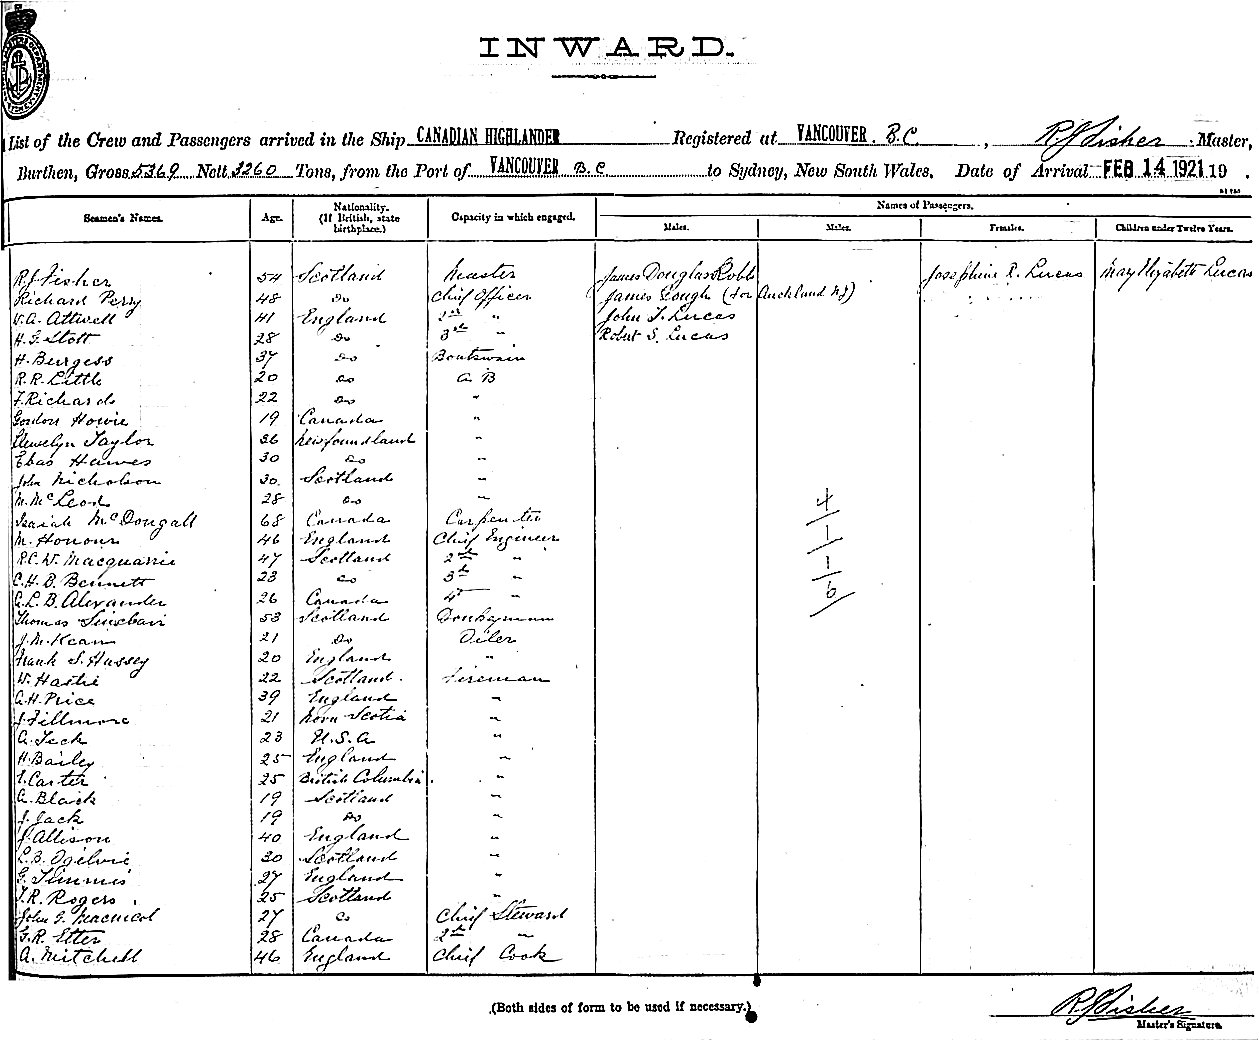 INWARD.
List of the Crew and Passengers arrived in the Ship CANADIAN HIGHLANDER Registered at VANCOUVER. B.C. , R J Fisher Master,
Burthen, Gross 5369 Nett 3260 Tons, from the Port of VANCOUVER B.C. to Sydney, New South Wales. Date of Arrival FEB 14 1921 19 .
Seamen's Names. Age. Nationality. (If British, state birthplace.) Capacity in which engaged. Names of Passengers.
Males. Males. Females. Children under Twelve Years.
R J Fisher 54 Scotland Master James Douglas Robb Josephine R. Lucas May Elizabeth Lucas
Richard Perry 48 Do Chief Officer James Gough (for Auckland NZ)
V. A. Attwell 41 England 2nd " John T. Lucas
H. G. Stott 28 Do 3rd " Robert S. Lucas
H. Burgess 37 Do Boatswain
R. R. Little 20 Do A B
F. Richards 22 Do "
Gordon Howie 19 Canada "
Llewelyn Taylor 26 Newfoundland "
Elias Hawes 30 Do "
John Nicholson 30 Scotland "
M. McLeod 28 Do " 4
Isaiah McDougall 68 Canada Carpenter
M. Honour 46 England Chief Engineer 1
R. C. W. Macquarrie 47 Scotland 2nd " 1
C. H. B. Bennett 23 Do 3rd "
A. L. B. Alexander 26 Canada 4th " 6
Thomas Sinclair 53 Scotland Donkeyman
J. M. Kean 21 Do Oiler
Frank S. Hussey 20 England "
W. Hastie 22 Scotland Fireman
A. H. Price 39 England "
J. Fillmore 21 Nova Scotia "
A. Teck 23 U.S.A "
H. Bailey 25 England "
Carter 25 British Columbia "
A. Black 19 Scotland "
J. Jack 19 Do "
J. Allison 40 England "
L. B. Ogilvie 30 Scotland "
G. Timmis 27 England "
T. R. Rogers 25 Scotland "
John G. Macnicol 27 Do Chief Steward
G. R. Etter 28 Canada 2nd "
A. Mitchell 46 England Chief Cook
(Both sides of form to be used if necessary.)
R J Fisher
Master's Signature.